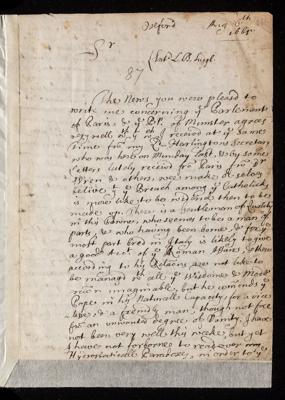 Oxford Aug 8th
1665
Sr
87
The News you were pleasd to
write me concerning ye Parlement
of Paris & ye Bp. of Munster agrees
very well wth wt I received at ye same
time from my Ld Arlingtons Secretary
who was here on Munday last, & by some
Letters lately receivd from Paris
Wren & others, we make
believe ye Breach among ye Catholicks
is more like to be widend then to be
made up. There is a Gentleman of Quality
in this Towne, who seemes to be a man of
parts, & who having been borne, & for ye
most part bred in Italy is likely to give
a good acct of ye Roman affaires, & these
according to his Relations are not like to
be managd wth all ye Wisdome & Mode-
ration imaginable, but he commends ye
Pope in his Naturall Capacity, for a wise
& a friendly man, though not free
from an unwonted degree of Vanity. I have
not been very well this weeke, but yet
I have not forborne to read over my
Hydrostaticall Paradoxes, in order to ye